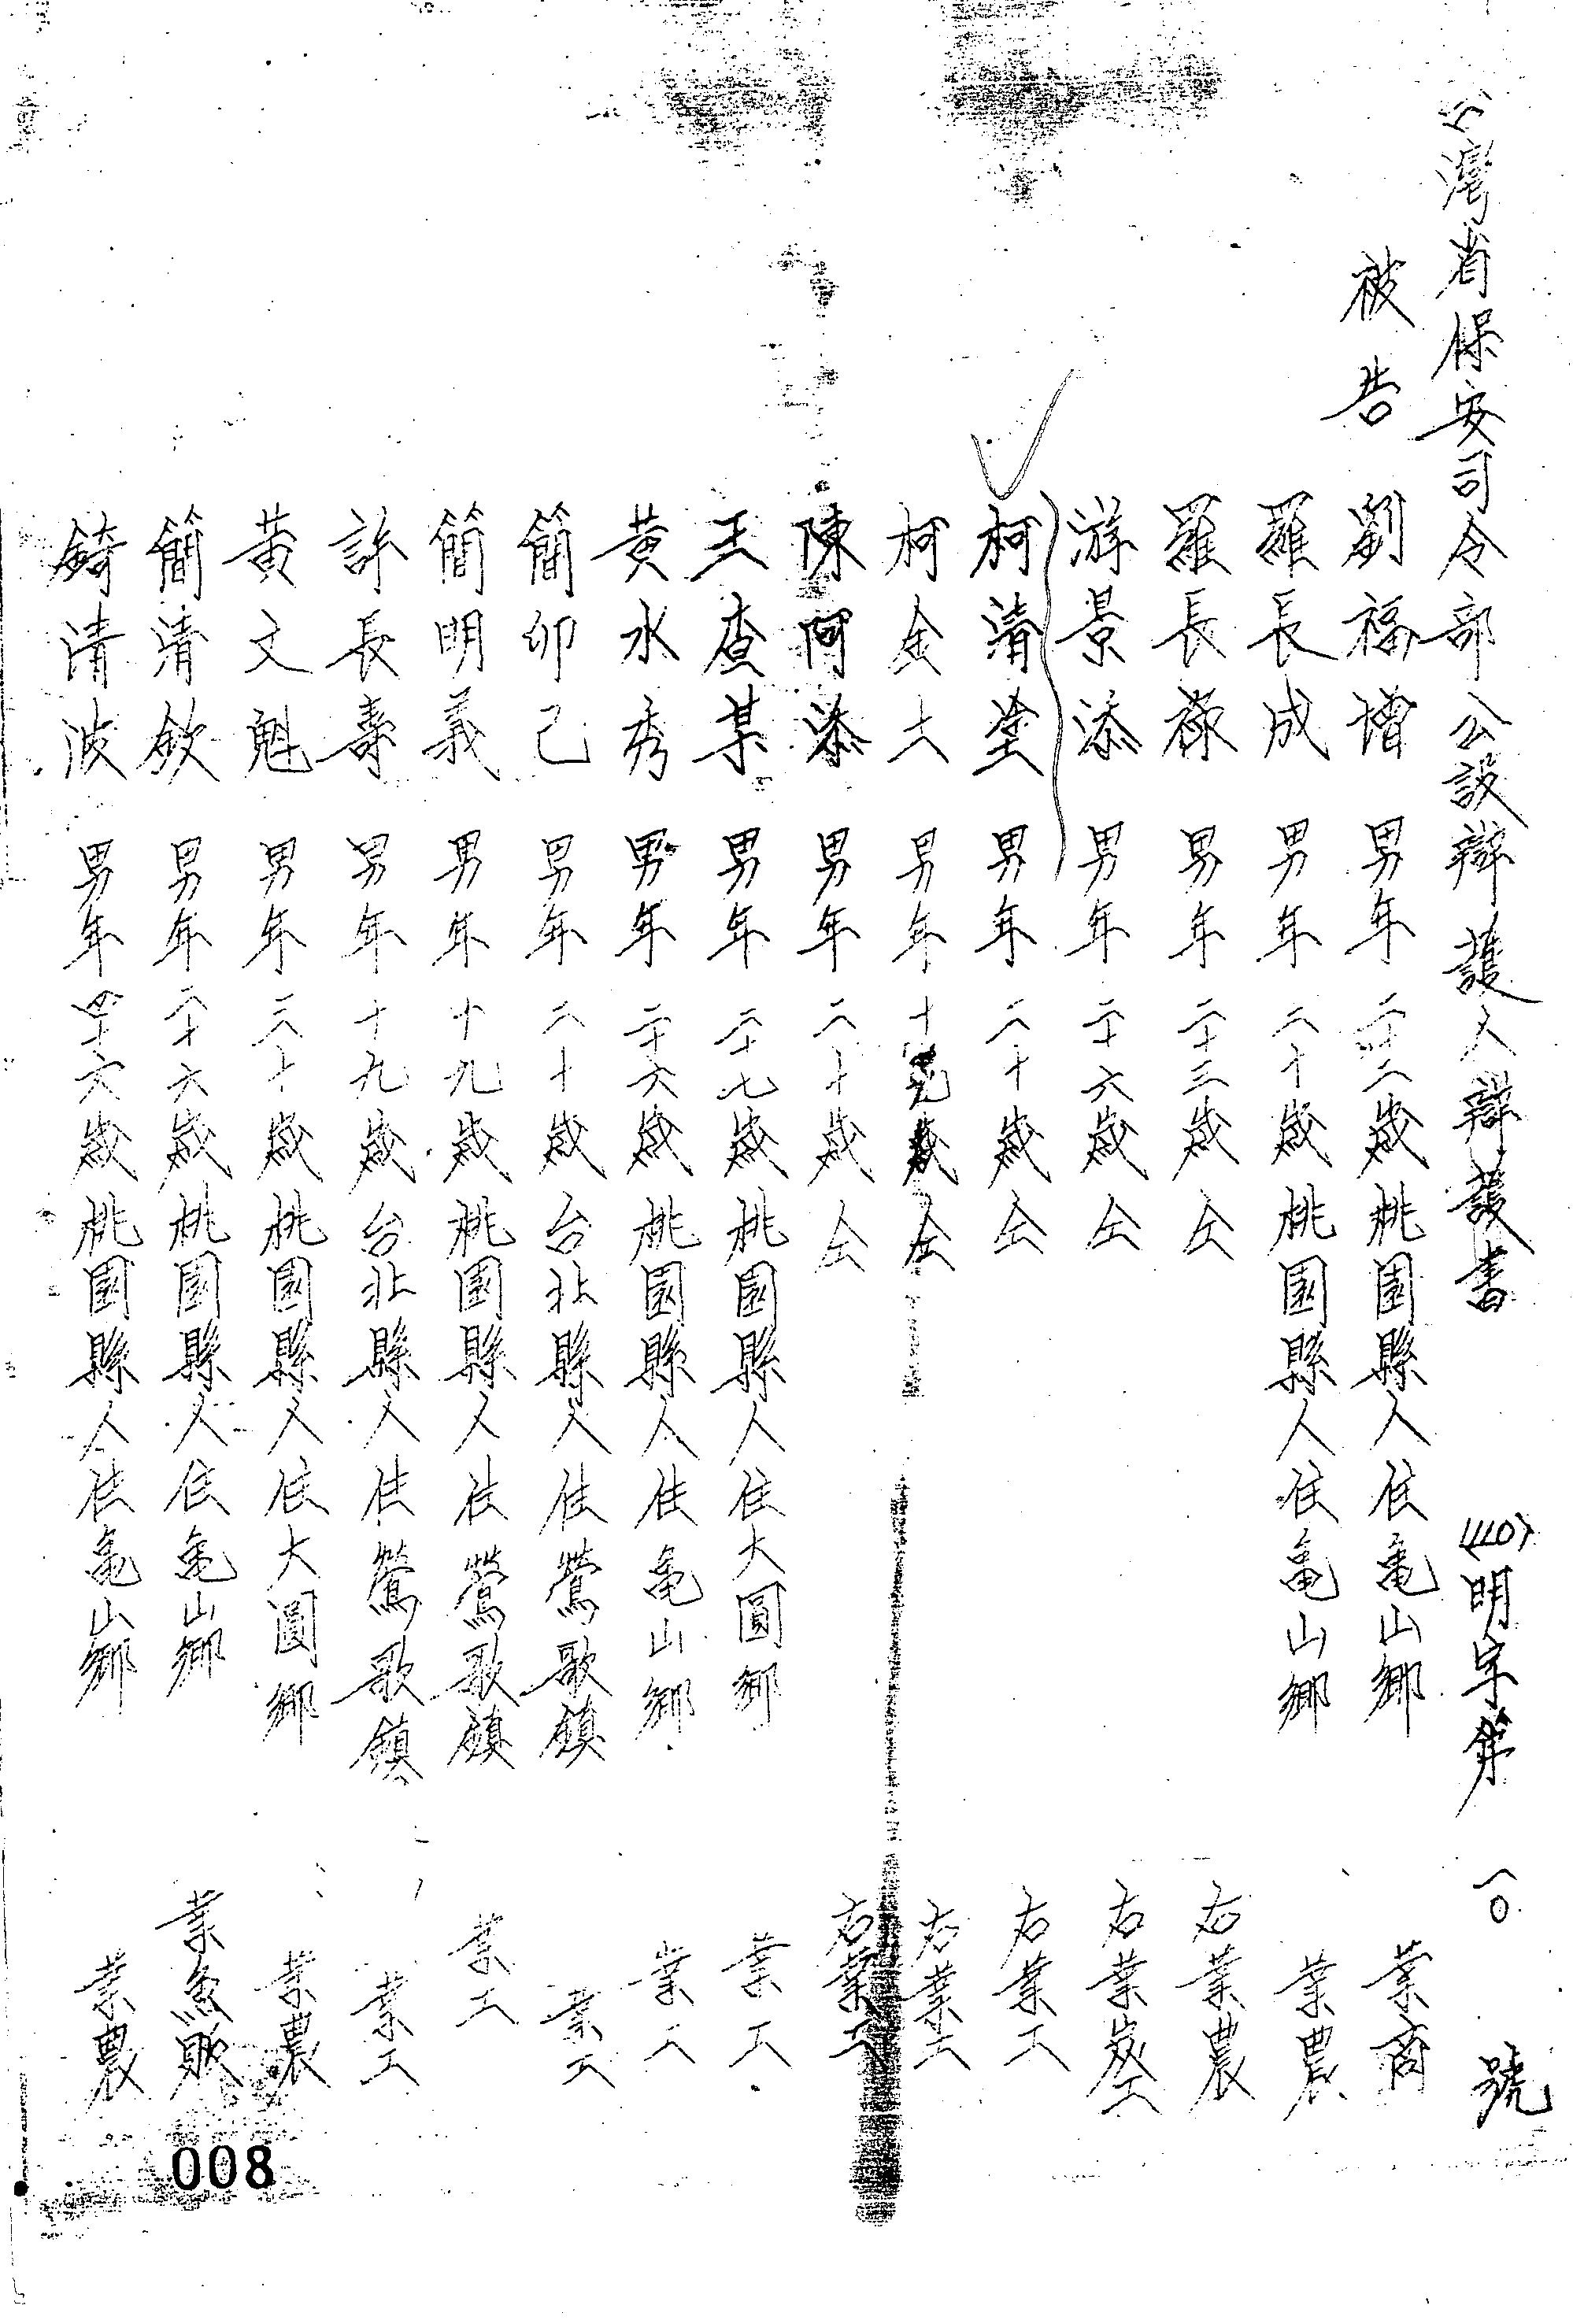 台灣省保安司令部公設辯護人辯護書 (40)明字第一〇號
被告 劉福增 男年二十二歲桃園縣人住龜山鄉 業商
羅長成 男年二十歲桃園縣人住龜山鄉 業農
羅長祿 男年二十三歲仝 右業農
游景添 男年二十六歲仝 右業炭工
柯清塗 男年二十歲仝 右業工
柯金土 男年十九歲仝 右業工
陳阿添 男年二十歲仝 右業工
王查某 男年二十七歲桃園縣人住大園鄉 業工
黃水秀 男年二十六歲桃園縣人住龜山鄉 業工
簡卯己 男年二十歲台北縣人住鶯歌鎮 業工
簡明義 男年十九歲桃園縣人住鶯歌鎮 業工
許長壽 男年十九歲台北縣人住鶯歌鎮 業工
黃文魁 男年二十歲桃園縣人住大園鄉 業農
簡清欽 男年二十六歲桃園縣人住龜山鄉 業魚販
錡清波 男年四十六歲桃園縣人住龜山鄉 業農
008